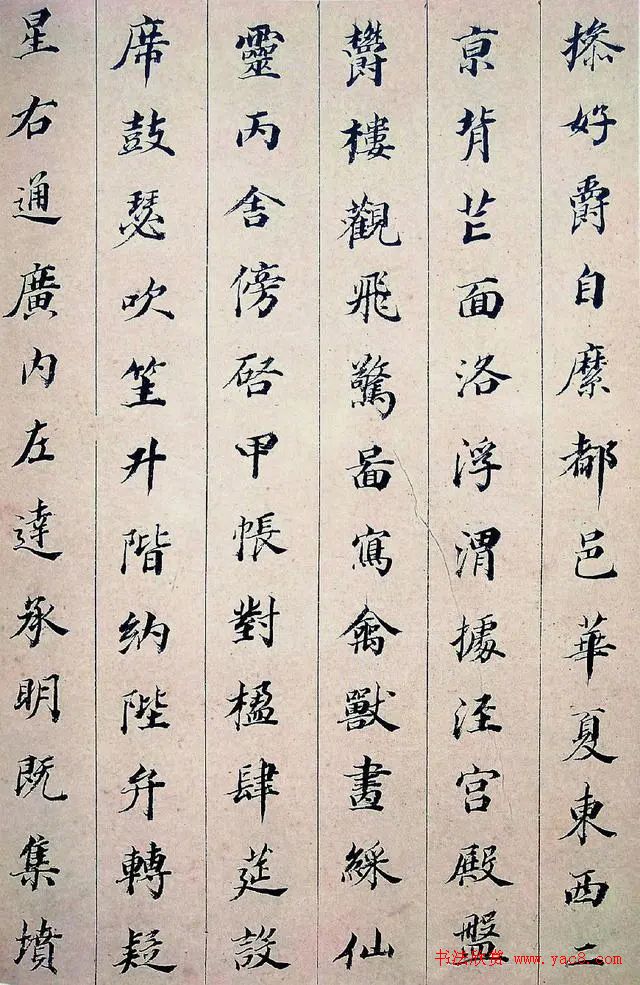 操好爵自縻都邑華夏東西二
京背芒面洛浮渭據涇宮殿盤
欝樓觀飛驚啚寫禽獸畫綵仙
靈丙舍傍啓甲帳對楹肆莚設
席鼓瑟吹笙升階納陛弁轉疑
星右通廣內左達承明既集墳
书法欣赏 www.yac8.com